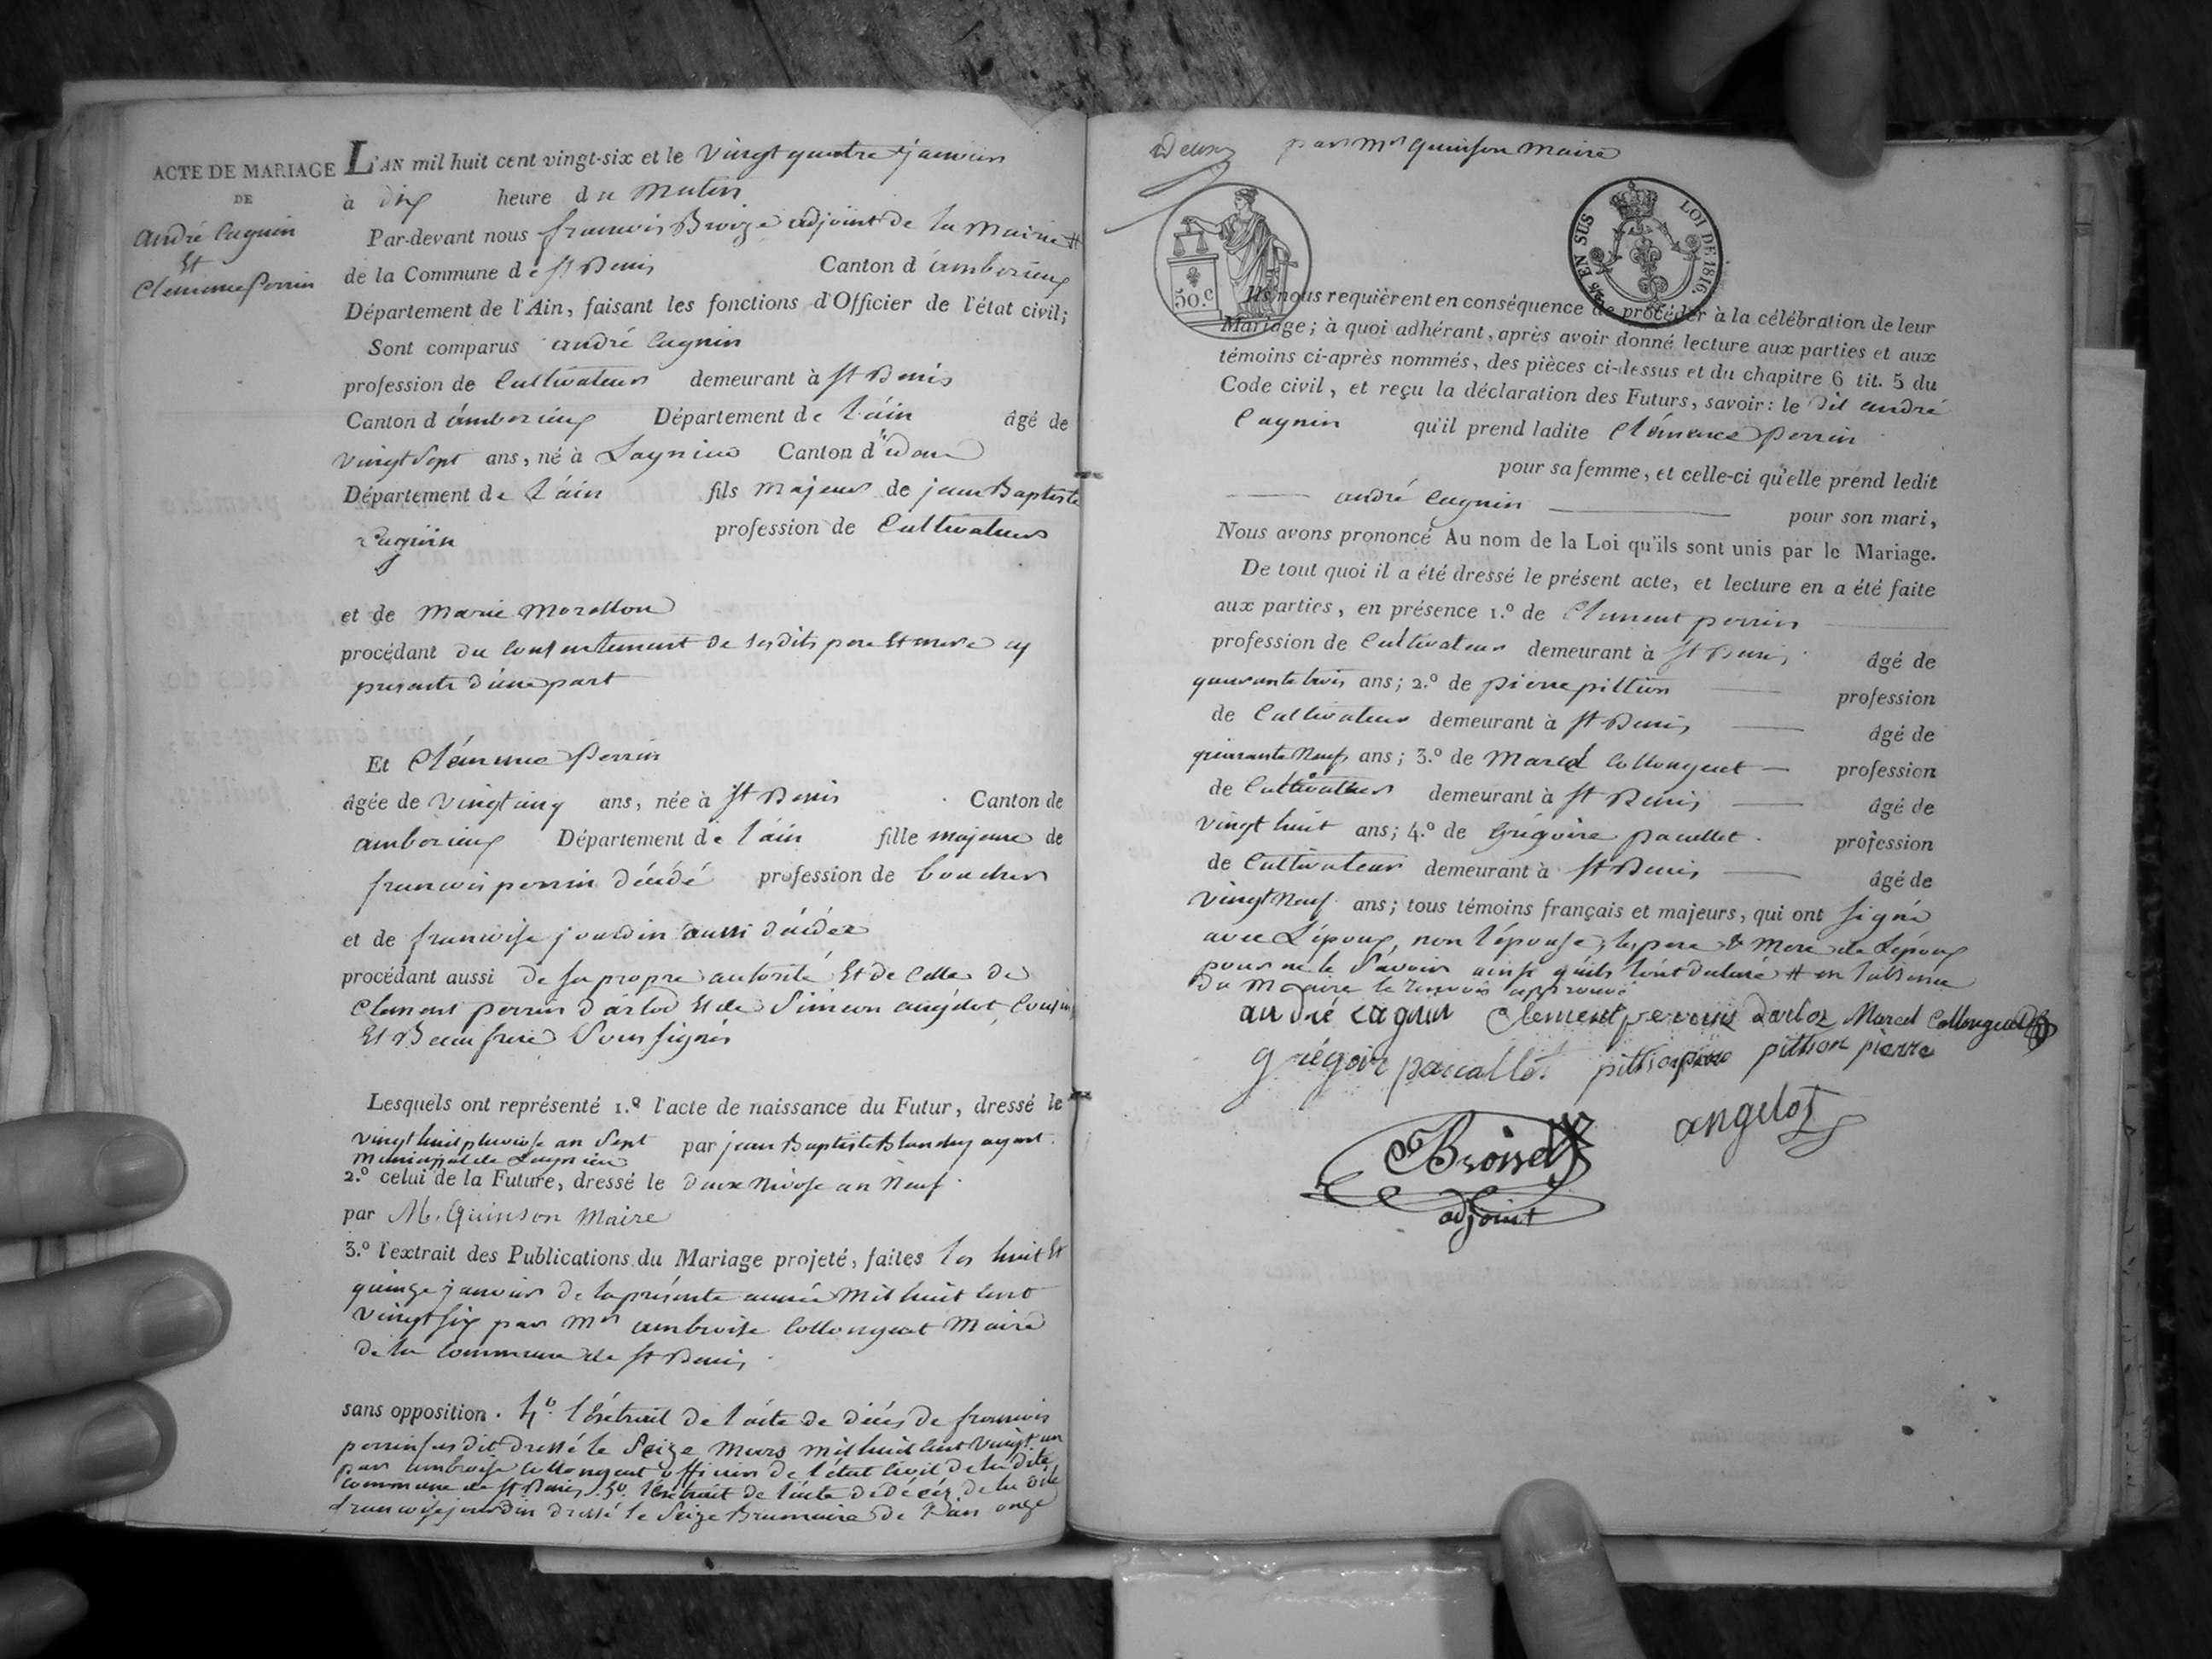 ACTE DE MARIAGE
DE
andré Cagnin
Et
Clémence Perrin
L'AN mil huit cent vingt-six et le vingt quatre janvier
à dix heure du matin
Par-devant nous francois Broize adjoint de la Mairie #
de la Commune de st Denis Canton d'amberieux
Département de l'Ain, faisant les fonctions d'Officier de l'état civil;
Sont comparus andré Cagnin
profession de Cultivateur demeurant à st Denis
Canton d'amberieux Département de l'ain âgé de
vingt sept ans, né à Lagnieu Canton d"
Département de l'ain fils majeur de jean Baptiste
Cagnin profession de Cultivateur
et de Marie Morellon
procédant du consentement de sesdits pere et mere cy
presents d'une part
Et Clémence Perrin
âgée de vingt cinq ans, née à st Denis Canton de
amberieux Département de l'ain fille majeure de
francois perrin décédé profession de boucher
et de francoise jourdin aussi décédée
procédant aussi de sa propre autorité Et de Celle de
Clement perrin d'arloz Et de Simeon angelot, Cousin
Et Beau frere Soussignés
Lesquels ont représenté 1.º l'acte de naissance du Futur, dressé le
vingt huit pluviose an Sept par jean Baptiste Blandry agent
municipal de Lagnieu
2.º celui de la Future, dressé le deux Nivose an Neuf
par M. Quinson Maire
3.º l'extrait des Publications du Mariage projeté, faites les huit Et
quinze janvier de la présente année Mil huit Cent
vingt six par Mr ambroise Collongeat Maire
de la Commune de st Denis
sans opposition. 4º l'Extrait de l'acte de décès de francois
perrin susdit dressé le Seize Mars mil huit Cent vingt un
par ambroise Collongeat officier de l'état Civil de la dite
Commune de st Denis. 5º l'Extrait de l'acte de décès de la dite
francoise jourdin dressé le Seize Brumaire de l'an onze
Deux
par Mr Quinson Maire
50.C
EN SUS
LOI DE 1816.
Ils nous requièrent en conséquence de procéder à la célébration de leur
Mariage; à quoi adhérant, après avoir donné lecture aux parties et aux
témoins ci-après nommés, des pièces ci-dessus et du chapitre 6 tit. 5 du
Code civil, et reçu la déclaration des Futurs, savoir: le dit andré
Cagnin qu'il prend ladite Clémence perrin
pour sa femme, et celle-ci qu'elle prend ledit
andré Cagnin pour son mari,
Nous avons prononcé Au nom de la Loi qu'ils sont unis par le Mariage.
De tout quoi il a été dressé le présent acte, et lecture en a été faite
aux parties, en présence 1.º de Clement perrin
profession de Cultivateur demeurant à st Denis âgé de
quarante trois ans; 2.º de pierre pittion profession
de Cultivateur demeurant à st Denis âgé de
quarante Neuf ans; 3.º de Marcel Collongeat profession
de Cultivateur demeurant à st Denis âgé de
vingt huit ans; 4.º de Grégoire pacallet profession
de Cultivateur demeurant à st Denis âgé de
vingt Neuf ans; tous témoins français et majeurs, qui ont signé
avec L'époux, non l'épouse, les pere & Mere de L'époux
pour ne le Savoir ainsi qu'ils l'ont declaré # en l'absence
du Maire le renvoi approuvé
andré cagnin Clement perrin Darloz Marcel Collongeat
grégoire pacallet pithion pierre
angelot
Broisse
adjoint